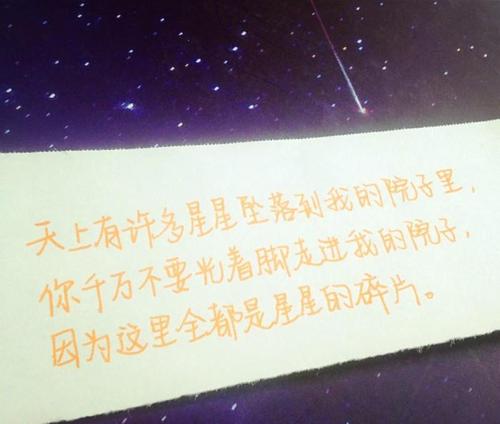 天上有许多星星坠落到我的院子里，
你千万不要光着脚走进我的院子，
因为这里全都是星星的碎片。